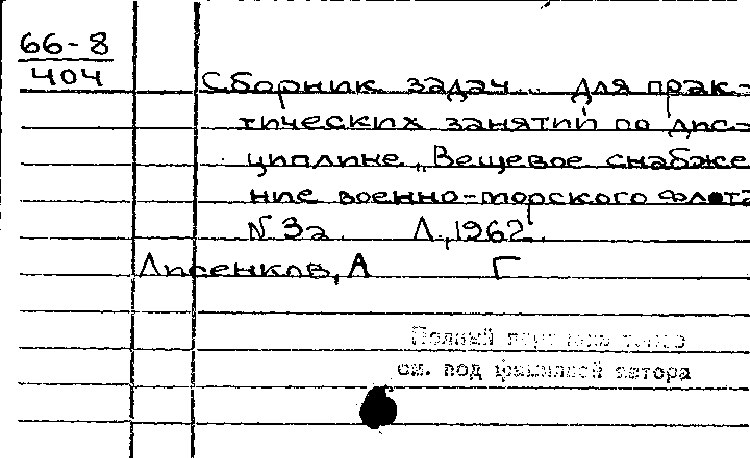 66-8
404
Сборник задач для прак-
тических занятий по дис-
циплине „Вещевое снабже
ние военно-морского флота
N 3а. Л., 1962.
Лисенков, А Г
Полный
см. под фамилией автора